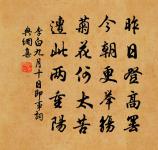 昨日登高罷
今朝更舉觴
菊花何太苦
遭此兩重陽
李白九月十日即事詞